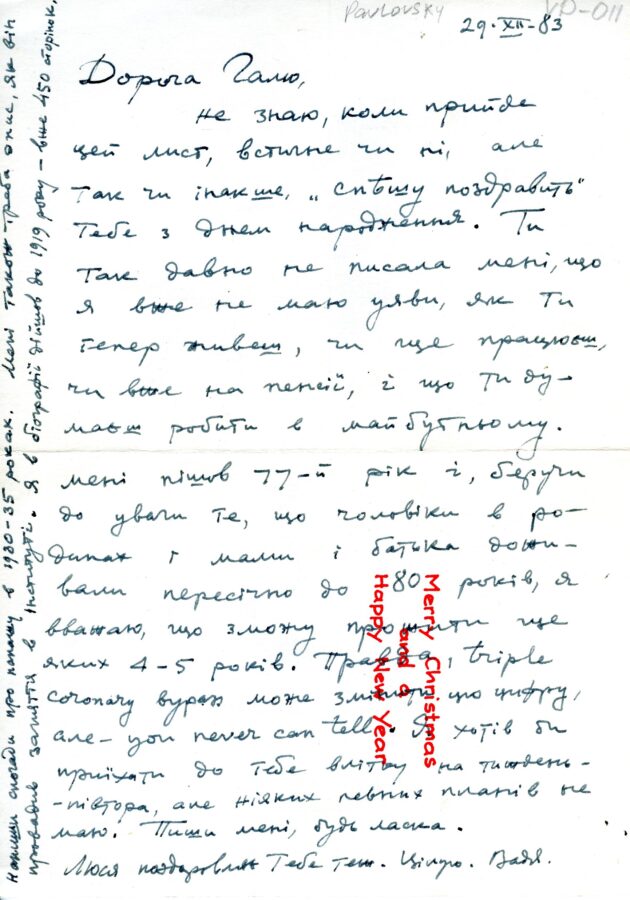 Pavlovsky
VP-011
29·XII-83
Дорога Галю,
не знаю, коли прийде
цей лист, встигне чи ні, але
так чи інакше, „спѣшу поздравить"
Тебе з днем народження. Ти
так давно не писала мені, що
я вже не маю уяви, як Ти
тепер живеш, чи ще працюєш,
чи вже на пенсії, і що ти ду-
маєш робити в майбутньому.
Мені пішов 77-й рік і, беручи
до уваги те, що чоловіки в ро-
динах і мами і батька дожи-
вали пересічно до 80 років, я
вважаю, що зможу прожити ще
яких 4-5 років. Правда, triple
coronary bypass може змінити цю цифру,
але – you never can tell. Я хотів би
приїхати до Тебе влітку на тиждень-
-півтора, але ніяких певних планів не
маю. Пиши мені, будь ласка.
Люся поздоровляє Тебе теж. Цілую. Вадя.
Напиши спогади про папашу в 1930-35 роках. Мені також треба опис, як він
провадив заняття в Інституті. Я в біографії дійшов до 1919 року – вже 450 сторінок.
Merry Christmas
and a
Happy New Year